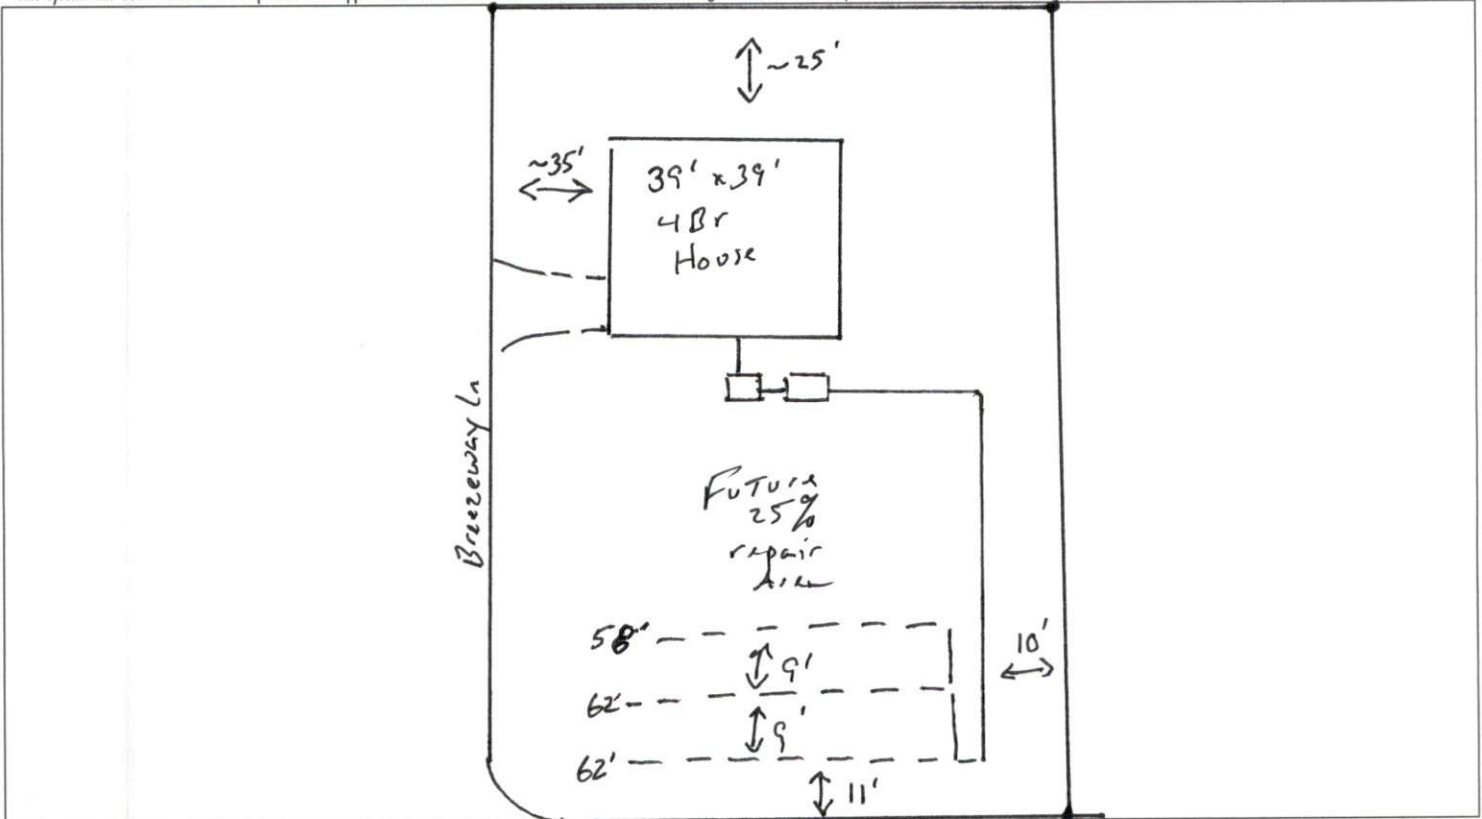 ~25'
~35'
39' x 39'
4 Br
House
Breezeway Ln
Future
25%
repair
Area
58'
9'
62'
10'
9'
62'
11'